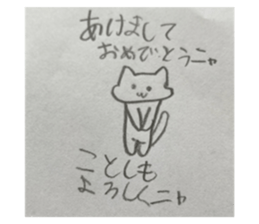 あけまして
おめでとうニャ
ことしも
よろしくニャ